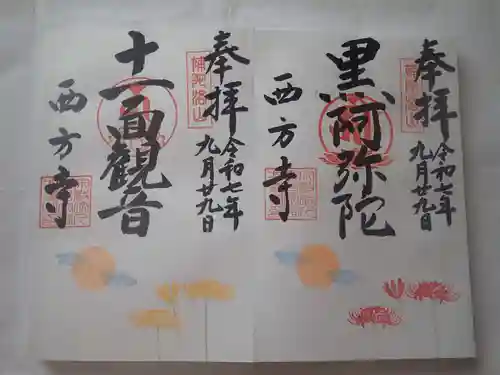 奉拝
令和七年
九月廿九日
黒阿弥陀
西方寺
奉拝
補陀洛山
令和七年
九月廿九日
十一面観音
西方寺